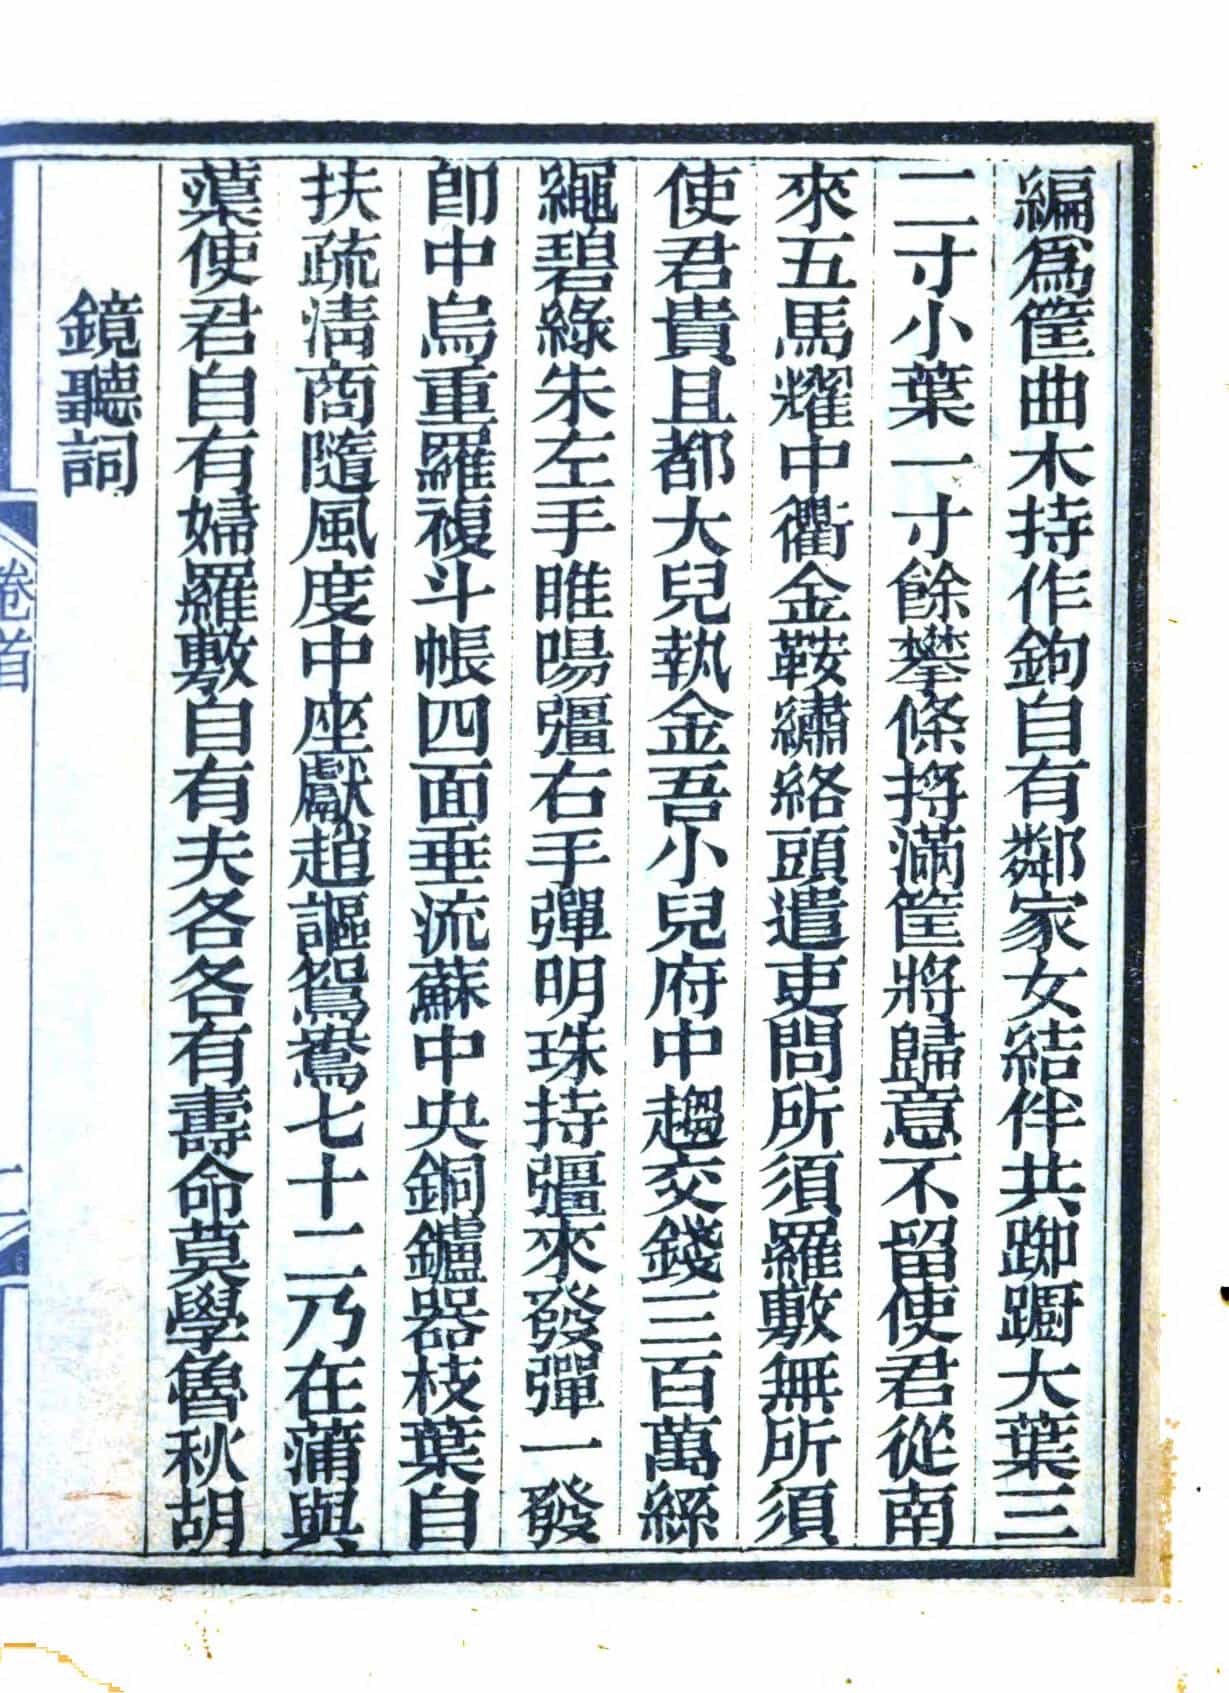 編爲筐曲木持作鉤自有鄰家女結伴共踟躕大葉三
二寸小葉一寸餘攀條捋滿筐將歸意不留使君從南
來五馬耀中衢金鞍繡絡頭遣吏問所須羅敷無所須
使君貴且都大兒執金吾小兒府中趨交錢三百萬絲
繩碧綠朱左手睢陽彊右手彈明珠持彊來發彈一發
卽中烏重羅複斗帳四面垂流蘇中央銅鑪器枝葉自
扶疏淸商隨風度中座獻趙謳鴛鴦七十二乃在蒲與
蕖使君自有婦羅敷自有夫各各有壽命莫學魯秋胡
鏡聽詞
卷首